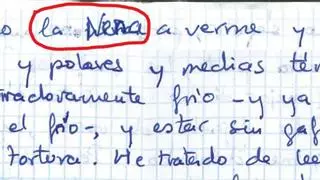 o la Nena a verme y
y polares y medias tér
tradovamente frío - y ya
el frío -, y estar sin gaf
tortura. He tratado de lee